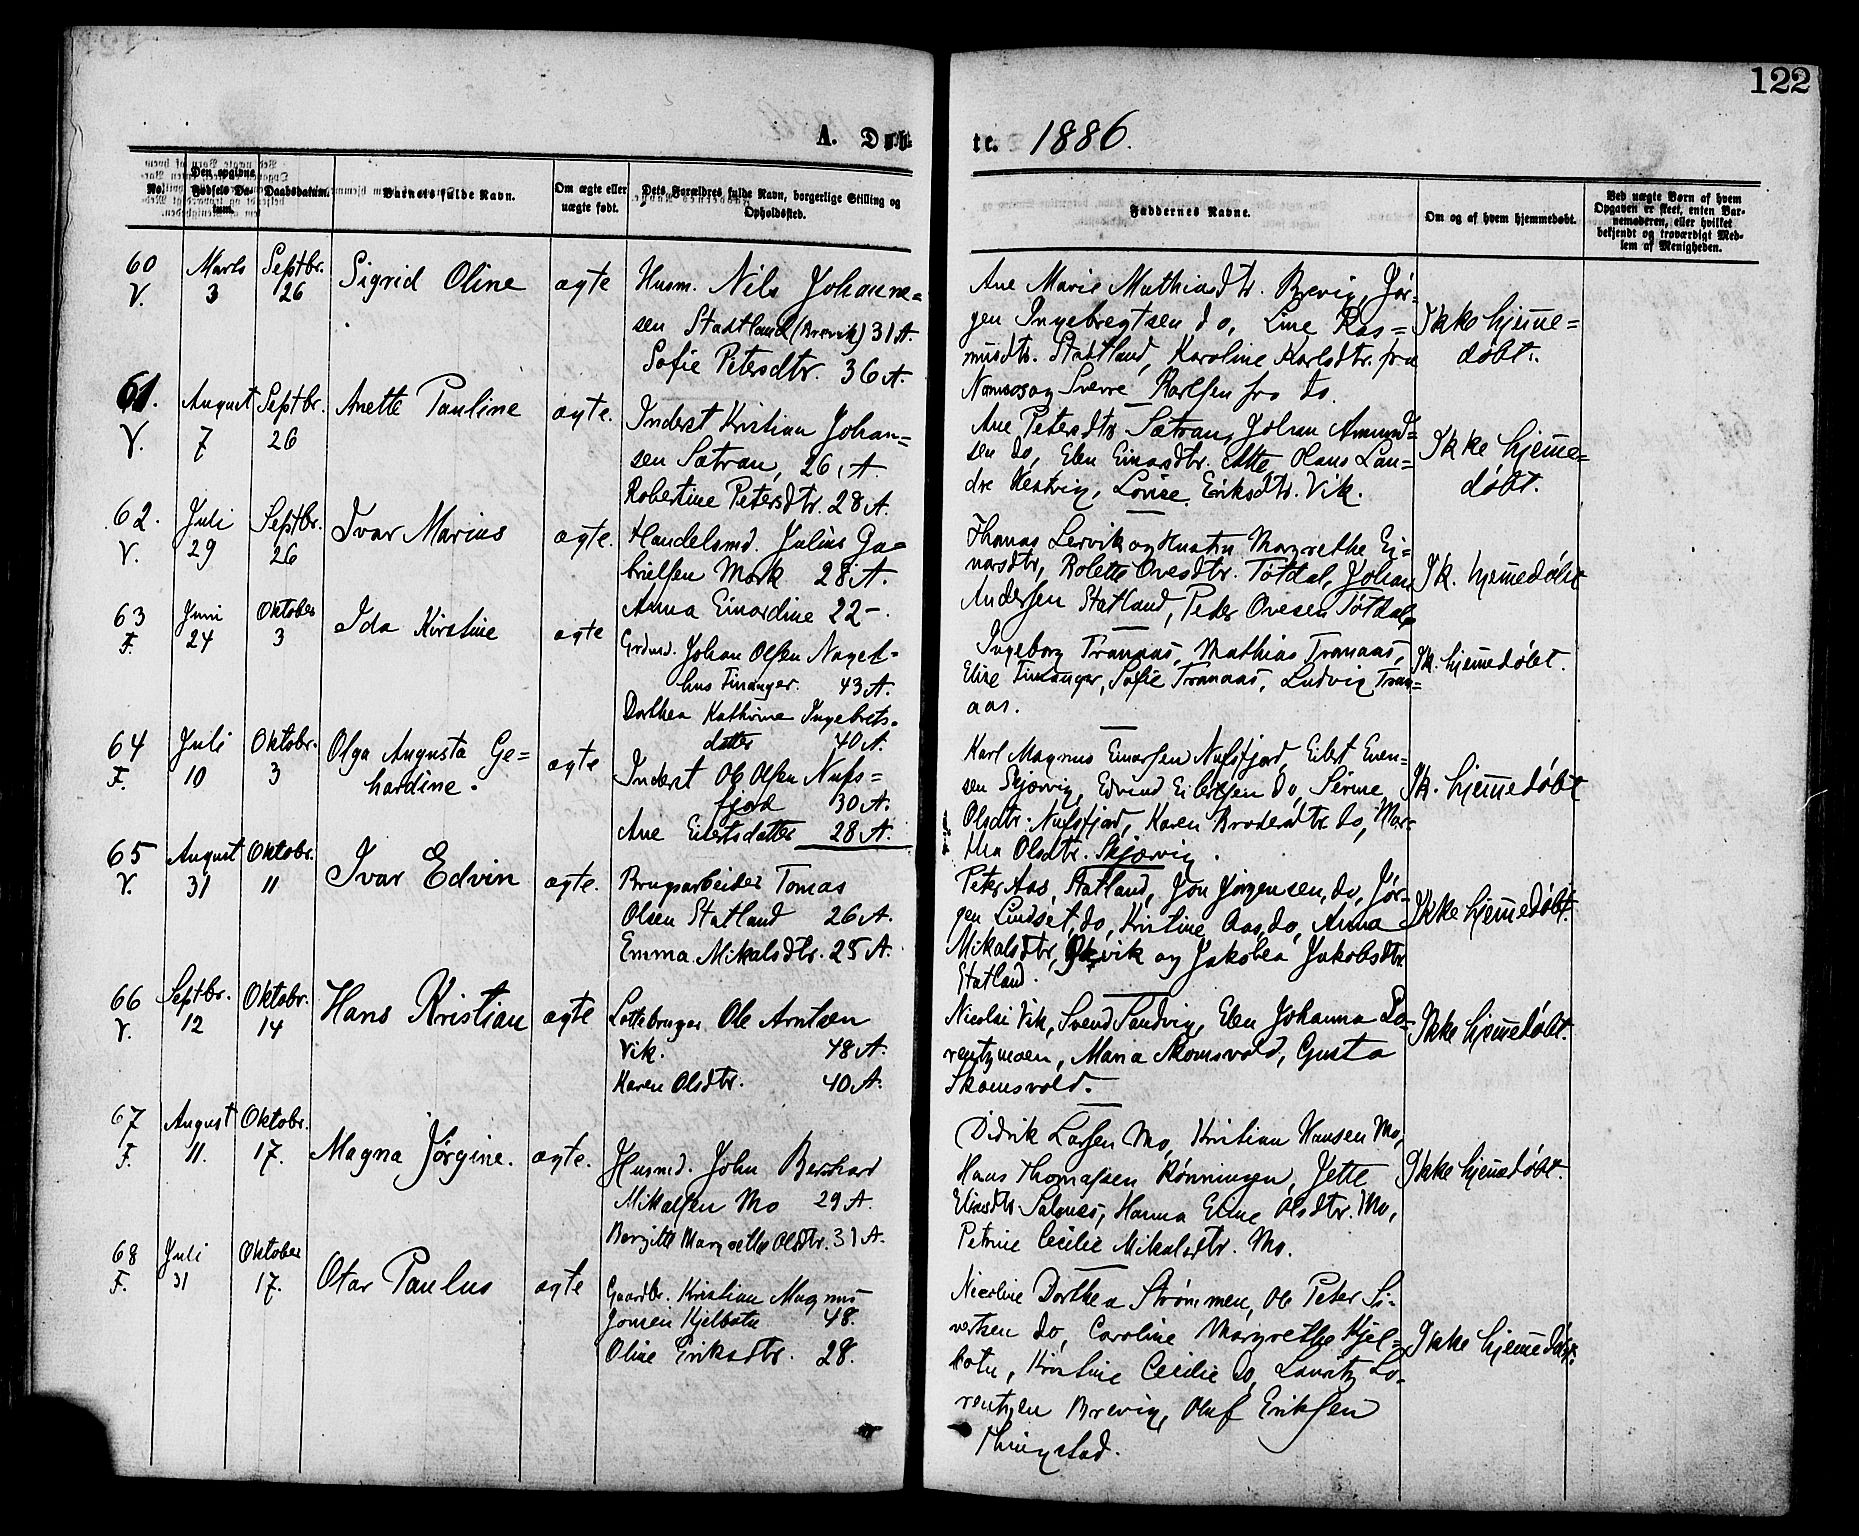 122
A. Døbte. 1886.
No.
Den opgivne Fødsels Datum.
Daabsdatum.
Barnets fulde Navn.
Om ægte eller uægte født.
Dets Forældres fulde Navn, borgerlige Stilling og Opholdssted.
Faddernes Navne.
Om og af hvem hjemmedøbt.
Ved uægte Børn af hvem Opgaven er skeet, enten Barnemoderen, eller hvilket bekjendt og troværdigt Medlem af Menigheden.
60 Marts Septbr.
V. 3 26
Sigrid Oline
ægte
Husm. Nils Johanne=
sen Stadtland (Brevik) 31 A.
Sofie Petersdtr. 36 A.
Ane Marie Mathiasdtr. Brevig, Jør=
gen Ingebregtsen do, Line Ras=
musdtr. Stadtland, Karoline Karlsdtr. fra
Namsos og Sverre Karlsen fra do.
Ikke hjemme=
døbt.
61. August Septbr.
V. 7 26
Anette Pauline
ægte.
Inderst Kristian Johan=
sen Sætran, 26, A.
Robertine Petersdtr. 28 A.
Ane Petersdtr Sætran, Johan Amund=
sen do, Elen Einarsdtr. Olans Lan=
dre, Lovise Eriksdtr. Vik.
Ikke hjemme=
døbt.
62. Juli Septbr.
V. 29 26
Ivar Marius
ægte.
Handelsmd. Julius Ga=
brielsen Mork 28 A.
Anna Einardine 22 -.
Thomas Lervik og Hustru Margrethe Ei=
narsdtr, Rolette Ovesdtr. Tøtdal, Johan
Andersen Statland, Peder Ovesen Tøtdal
Ik. hjemmedøbt
63 Juni Oktober
F. 24 3
Ida Kirstine
ægte
Grdmd. Johan Olsen Naget=
hus Finanger. 43 A.
Dorthea Kathrine Ingebrets=
datter 40 A.
Ingeborg Tranaas, Mathias Tranaas,
Eline Finanger, Sofie Tranaas, Ludvig Tran=
aas.
Ik. hjemmedøbt.
64 Juli Oktobr.
F. 10 3
Olga Augusta Ge=
hardine.
ægte
Inderst Ole Olsen Nufs=
fjord 30 A.
Ane Eilertsdatter 28 A.
Karl Magnus Einarsen Nufsfjord, Eilert Even=
sen Skjørvig, Edvind Eilertsen do, Serine
Olsdtr. Nufsfjord, Karen do, Mar=
tha Olsdtr. Skjærvig.
Ik. hjemmedøbt
65 August Oktobr.
V. 31 11
Ivar Edvin
ægte.
Brugsarbeider Tomas
Olsen Statland 26 A.
Emma Mikalsdtr. 25 A.
Peter Aas, Statland, Jon Jørgensen, do, Jør=
gen Lindset, do, Kristine Aas, do, Anna
Mikalsdtr, og Jakobea Jakobsdtr
Statland.
Ikke hjemmedøbt.
66 Septbr. Oktobr.
V. 12 14
Hans Kristian
ægte
Ole Arntsen
Vik. 48 A.
Karen Olsdtr. 40 A.
Nicolai Vik, Svend Sandvig, Elen Johanna Lo=
rentzmoen, Maria Skomsvold, Gusta
Skomsvold.
Ikke hjemmedøbt.
67 August Oktobr.
F. 11. 17.
Magna Jørgine.
ægte.
Husmd. John Bernhard
Mikalsen Mo 29 A.
Bergitte Margrethe Olsdtr. 31 A.
Didrik Larsen Mo, Kristian Hansen Mo,
Hans Thomassen Rønningen, Jette
Eliasdtr. Salsnes, Hanna Eline Olsdtr. Mo,
Petrine Cecilie Mikalsdtr. Mo.
Ikke hjemmedøbt.
68 Juli Oktober
F. 31 17.
Otar Paulus
ægte
Gaardbr. Kristian Magnus
Jonsen Kjelbotn 48.
Oline Eriksdtr. 28.
Nicoline Dorthea Strømmen, Ole Peter Si=
vertsen do, Caroline Margrethe Kjel=
botn, Kristine Cecilie do, Lauritz Lo=
rentzen Brevig, Oluf Eriksen
Thingstad.
Ikke hjemmedøbt.